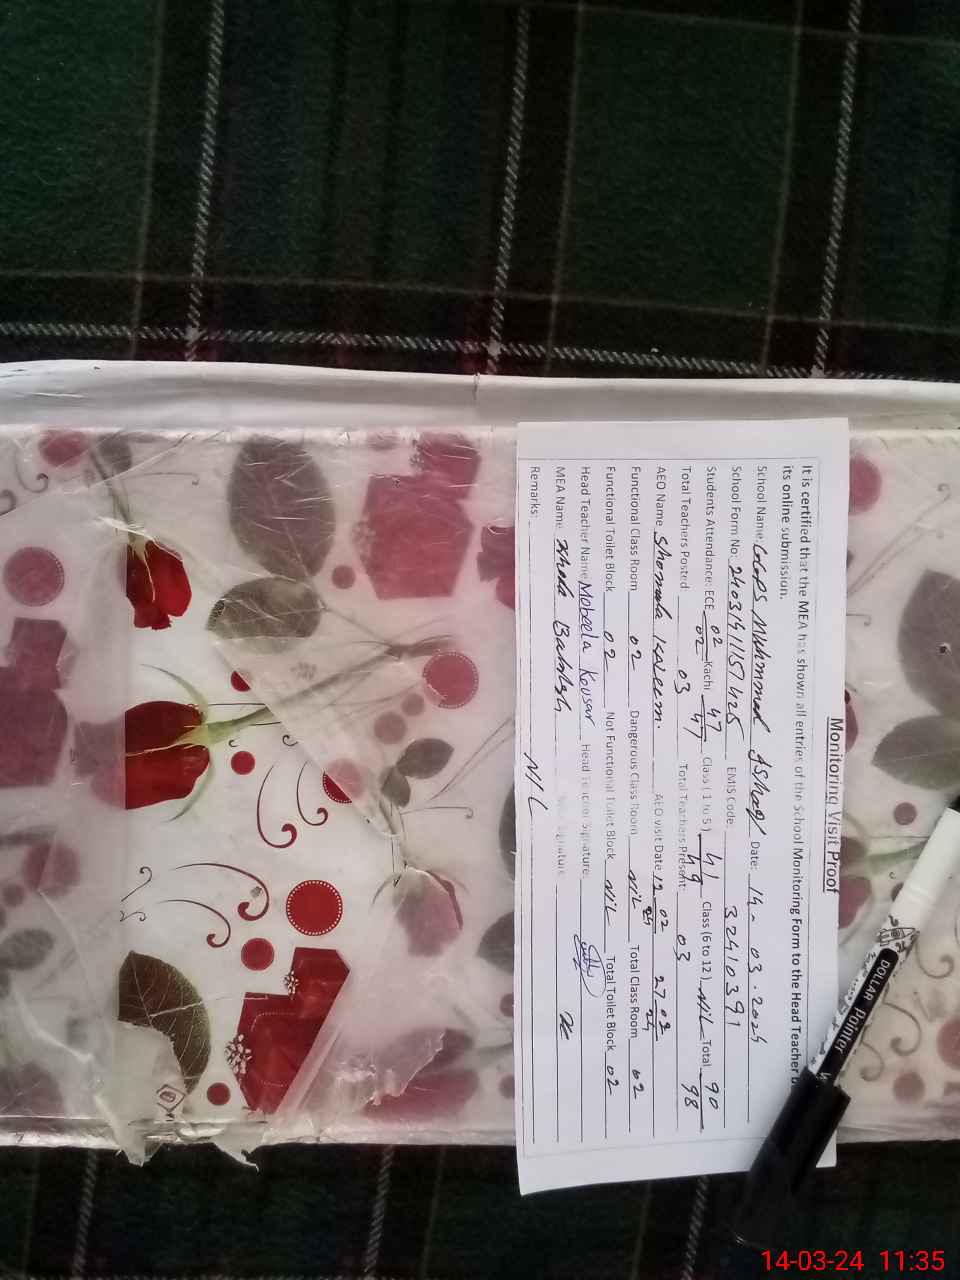 Monitoring Visit Proof
It is certified that the MEA has shown all entries of the School Monitoring Form to the Head Teacher
its online submission.
School Name: GGPS Muhmmad Ishaq Date: 14-03.2024
School Form No: EMIS Code: 32410391
Students Attendance: ECE 02/02 Kachi 47/47 Class (1 to 5) 41/49 Class (6 to 12) NiL Total 90/98
Total Teachers Posted 03 Total Teachers Present: 03
AEO Name Shomala Kaleem. AEO visit Date 12-02-24 27-02-24
Functional Class Room 02 Dangerous Class Room NiL Total Class Room 02
Functional Toilet Block 02 Not Functional Toilet Block NiL Total Toilet Block 02
Head Teacher Name Mobeela Kousar Head Teacher Signature:
MEA Name Signature
Remarks: NIL
DOLLAR Pointer
14-03-24 11:35